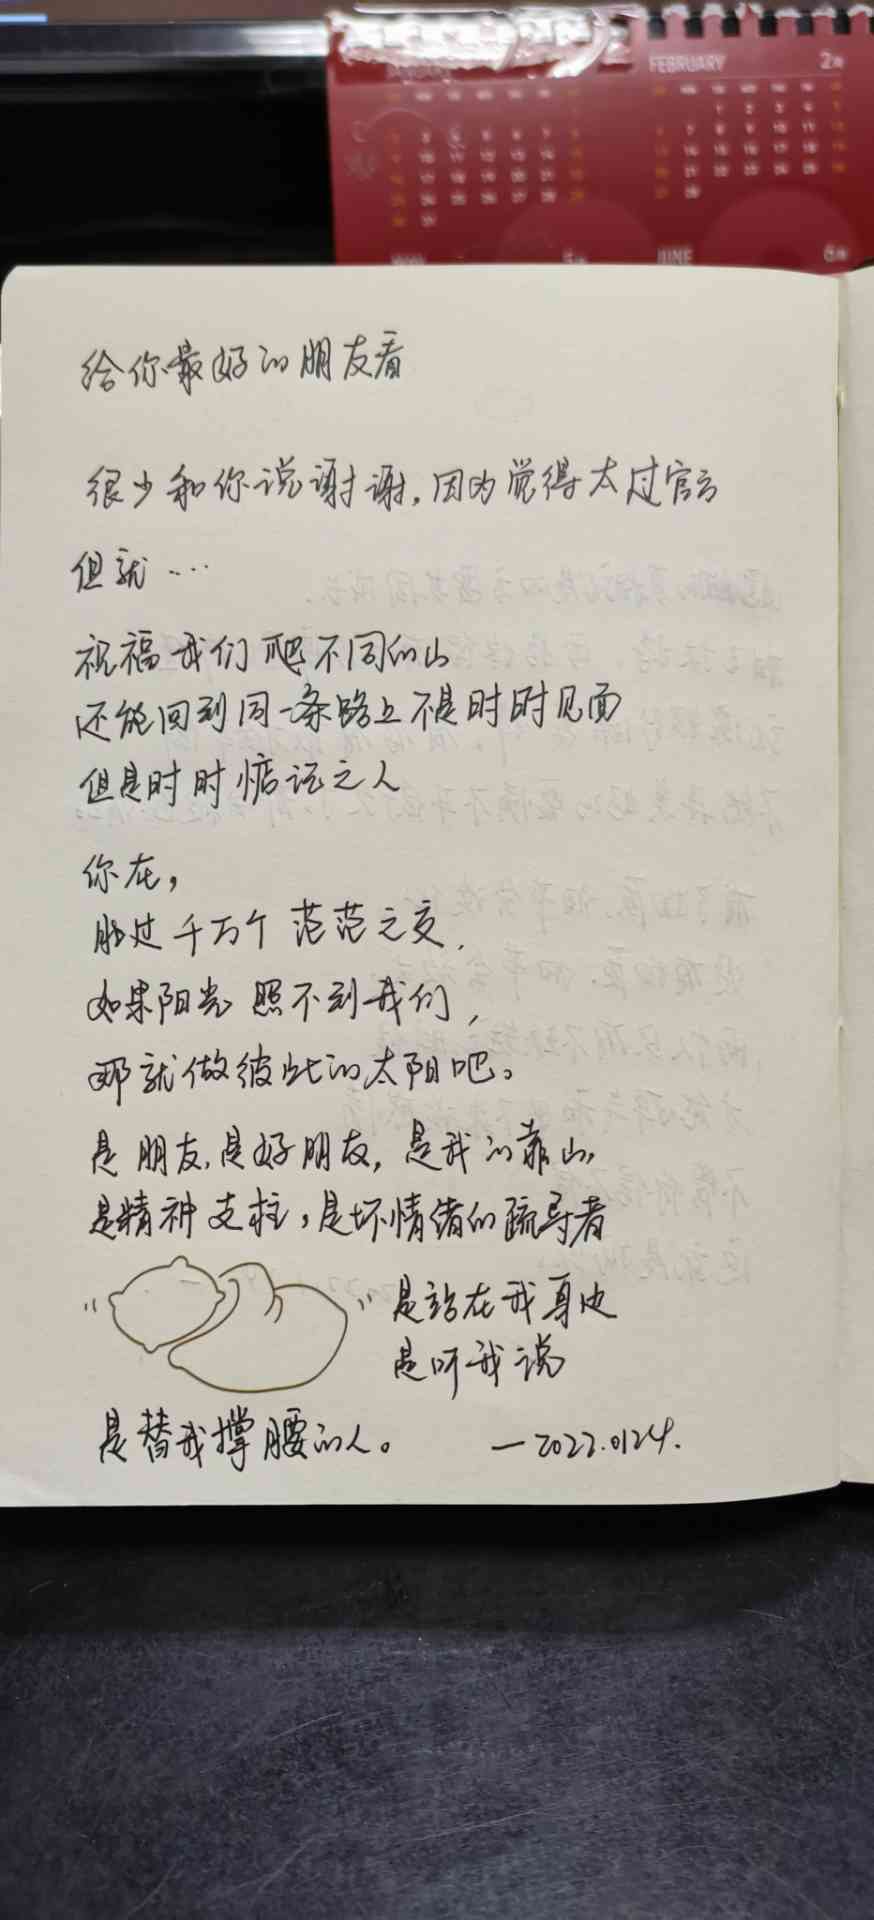 FEBRUARY 2月
JUNE 6月
给你最好的朋友看
很少和你说谢谢,因为觉得太过官方
但就…
祝福我们爬不同的山
还能回到同一条路上不是时时见面
但是时时惦记之人
你在,
胜过千万个范范之交,
如果阳光照不到我们,
那就做彼此的太阳吧。
是朋友,是好朋友,是我的靠山,
是精神支柱,是坏情绪的疏导者
是站在我身边
是听我说
是替我撑腰的人。 —2022.0124.